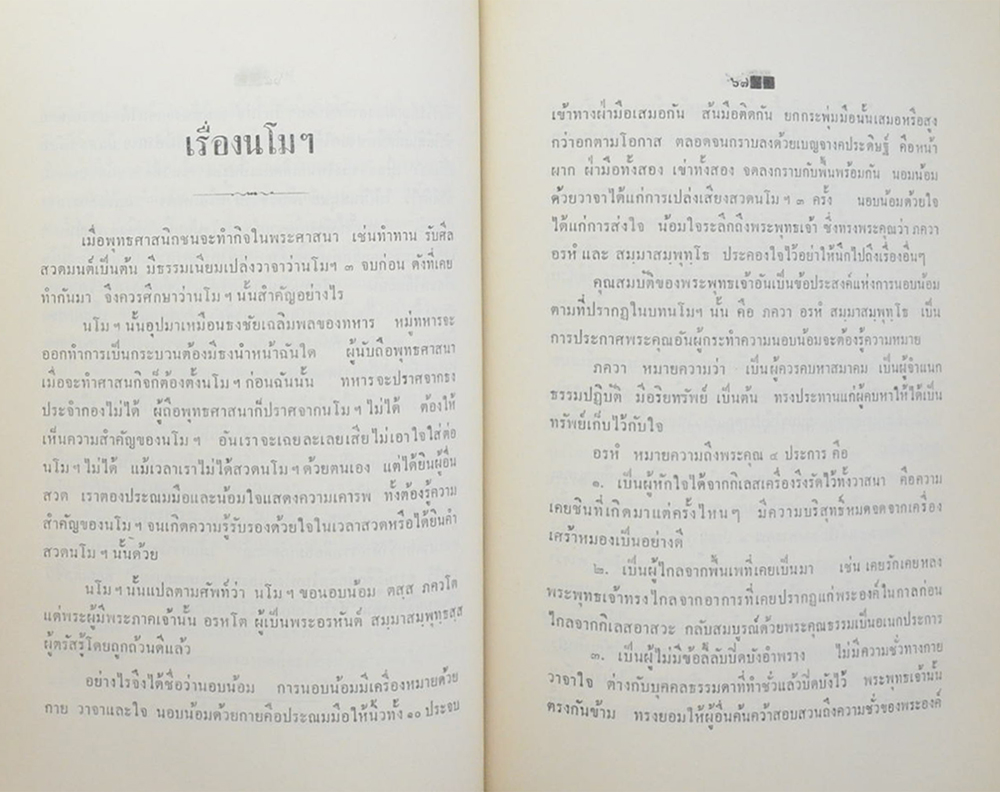 เรื่องนโมฯ
เมื่อพุทธศาสนิกชนจะทำกิจในพระศาสนา เช่นทำทาน รับศีล
สวดมนต์เป็นต้น มีธรรมเนียมเปล่งวาจาว่านโมฯ ๓ จบก่อน ดังที่เคย
ทำกันมา จึงควรศึกษาว่านโมฯ นั้นสำคัญอย่างไร
นโมฯ นั้นอุปมาเหมือนธงชัยเฉลิมพลของทหาร หมู่ทหารจะ
ออกทำการเป็นกระบวนต้องมีธงนำหน้าฉันใด ผู้นับถือพุทธศาสนา
เมื่อจะทำศาสนกิจก็ต้องตั้งนโมฯ ก่อนฉันนั้น ทหารจะปราศจากธง
ประจำกองไม่ได้ ผู้ถือพุทธศาสนาก็ปราศจากนโมฯ ไม่ได้ ต้องให้
เห็นความสำคัญของนโมฯ อันเราจะเฉยละเลยเสียไม่เอาใจใส่ต่อ
นโมฯ ไม่ได้ แม้เวลาเราไม่ได้สวดนโมฯ ด้วยตนเอง แต่ได้ยินผู้อื่น
สวด เราต้องประณมมือและน้อมใจแสดงความเคารพ ทั้งต้องรู้ความ
สำคัญของนโมฯ จนเกิดความรู้รับรองด้วยใจในเวลาสวดหรือได้ยินคำ
สวดนโมฯ นั้นด้วย
นโมฯ นั้นแปลตามศัพท์ว่า นโมฯ ขอนอบน้อม ตสฺส ภควโต
แด่พระผู้มีพระภาคเจ้านั้น อรหโต ผู้เป็นพระอรหันต์ สมฺมาสมฺพุทฺธสฺส
ผู้ตรัสรู้โดยถูกถ้วนดีแล้ว
อย่างไรจึงได้ชื่อว่านอบน้อม การนอบน้อมมีเครื่องหมายด้วย
กาย วาจาและใจ นอบน้อมด้วยกายคือประณมมือให้นิ้วทั้ง ๑๐ ประจบ
๖๗
เข้าทางฝ่ามือเสมอกัน สันมือติดกัน ยกกระพุ่มมือนั้นเสมอหรือสูง
กว่าอกตามโอกาส ตลอดจนกราบลงด้วยเบญจางคประดิษฐ์ คือหน้า
ผาก ฝ่ามือทั้งสอง เข่าทั้งสอง จดลงกราบกับพื้นพร้อมกัน นอมน้อม
ด้วยวาจาได้แก่การเปล่งเสียงสวดนโมฯ ๓ ครั้ง นอบน้อมด้วยใจ
ได้แก่การส่งใจ น้อมใจระลึกถึงพระพุทธเจ้า ซึ่งทรงพระคุณว่า ภควา
อรหํ และ สมฺมาสมฺพุทฺโธ ประคองใจไว้อย่าให้นึกไปถึงเรื่องอื่นๆ
คุณสมบัติของพระพุทธเจ้าอันเป็นข้อประสงค์แห่งการนอบน้อม
ตามที่ปรากฏในบทนโมฯ นั้น คือ ภควา อรหํ สมฺมาสมฺพุทฺโธ เป็น
การประกาศพระคุณอันผู้กระทำความนอบน้อมจะต้องรู้ความหมาย
ภควา หมายความว่า เป็นผู้ควรคบหาสมาคม เป็นผู้จำแนก
ธรรมปฏิบัติ มีอริยทรัพย์ เป็นต้น ทรงประทานแก่ผู้คบหาให้ได้เป็น
ทรัพย์เก็บไว้กับใจ
อรหํ หมายความถึงพระคุณ ๔ ประการ คือ
๑. เป็นผู้หักใจได้จากกิเลสเครื่องรึงรัดไว้ทั้งวาสนา คือความ
เคยชินที่เกิดมาแต่ครั้งไหนๆ มีความบริสุทธิ์หมดจดจากเครื่อง
เศร้าหมองเป็นอย่างดี
๒. เป็นผู้ไกลจากพื้นเพที่เคยเป็นมา เช่น เคยรักเคยหลง
พระพุทธเจ้าทรงไกลจากอาการที่เคยปรากฏแก่พระองค์ในกาลก่อน
ไกลจากกิเลสอาสวะ กลับสมบูรณ์ด้วยพระคุณธรรมเป็นอเนกประการ
๓. เป็นผู้ไม่มีข้อลี้ลับปิดบังอำพราง ไม่มีความชั่วทางกาย
วาจาใจ ต่างกับบุคคลธรรมดาที่ทำชั่วแล้วปิดบังไว้ พระพุทธเจ้านั้น
ตรงกันข้าม ทรงยอมให้ผู้อื่นค้นคว้าสอบสวนถึงความชั่วของพระองค์